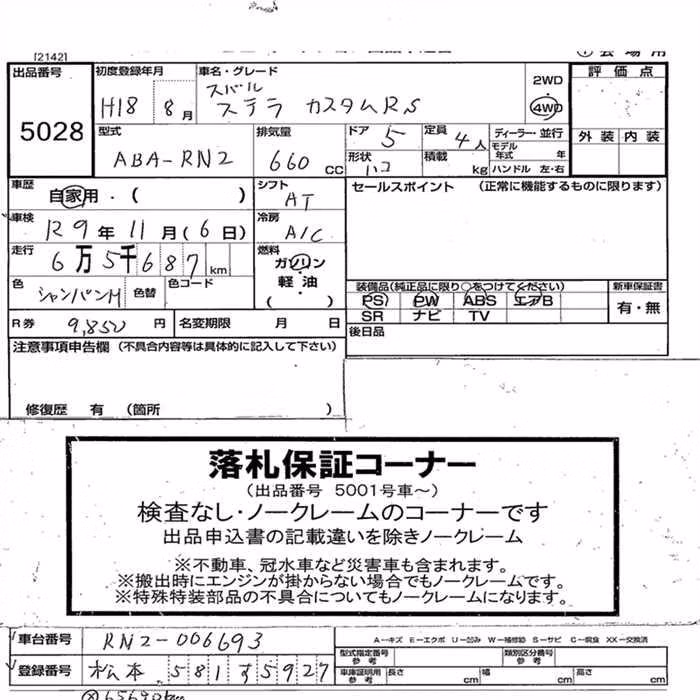 [2142]
出品番号
5028
初度登録年月
H18 8月
車名・グレード
スバル
ステラ カスタムRS
2WD
4WD
評価点
外装 内装
型式
ABA-RN2
排気量
660 CC
ドア 5
定員 4人
形状 ハコ
積載 kg
ディーラー・並行
モデル年式 年
ハンドル 左・右
車歴
自家用・( )
シフト
AT
セールスポイント (正常に機能するものに限ります)
車検
R9年11月(6日)
冷房
A/C
走行
6万5千687km
燃料
ガソリン
・
軽油
( )
色
シャンパンM
色替
色コード
装備品(純正品に限り○をつけてください)
PS PW ABS エアB
SR ナビ TV
新車保証書
有・無
R券 9,850円
名変期限 月 日
後日品
注意事項申告欄 (不具合内容等は具体的に記入して下さい)
修復歴 有 (箇所 )
落札保証コーナー
(出品番号 5001号車~)
検査なし・ノークレームのコーナーです
出品申込書の記載違いを除きノークレーム
※不動車、冠水車など災害車も含まれます。
※搬出時にエンジンが掛からない場合でもノークレームです。
※特殊特装部品の不具合についてもノークレームになります。
車台番号 RN2-006693
A-キズ E-エクボ U-凹み W-補修跡 S-サビ C-腐食 XX-交換済
型式指定番号 参考
類別区分番号 参考
登録番号 松本 581 す 5927
車庫証明用 参考 長さ cm 幅 cm 高さ cm